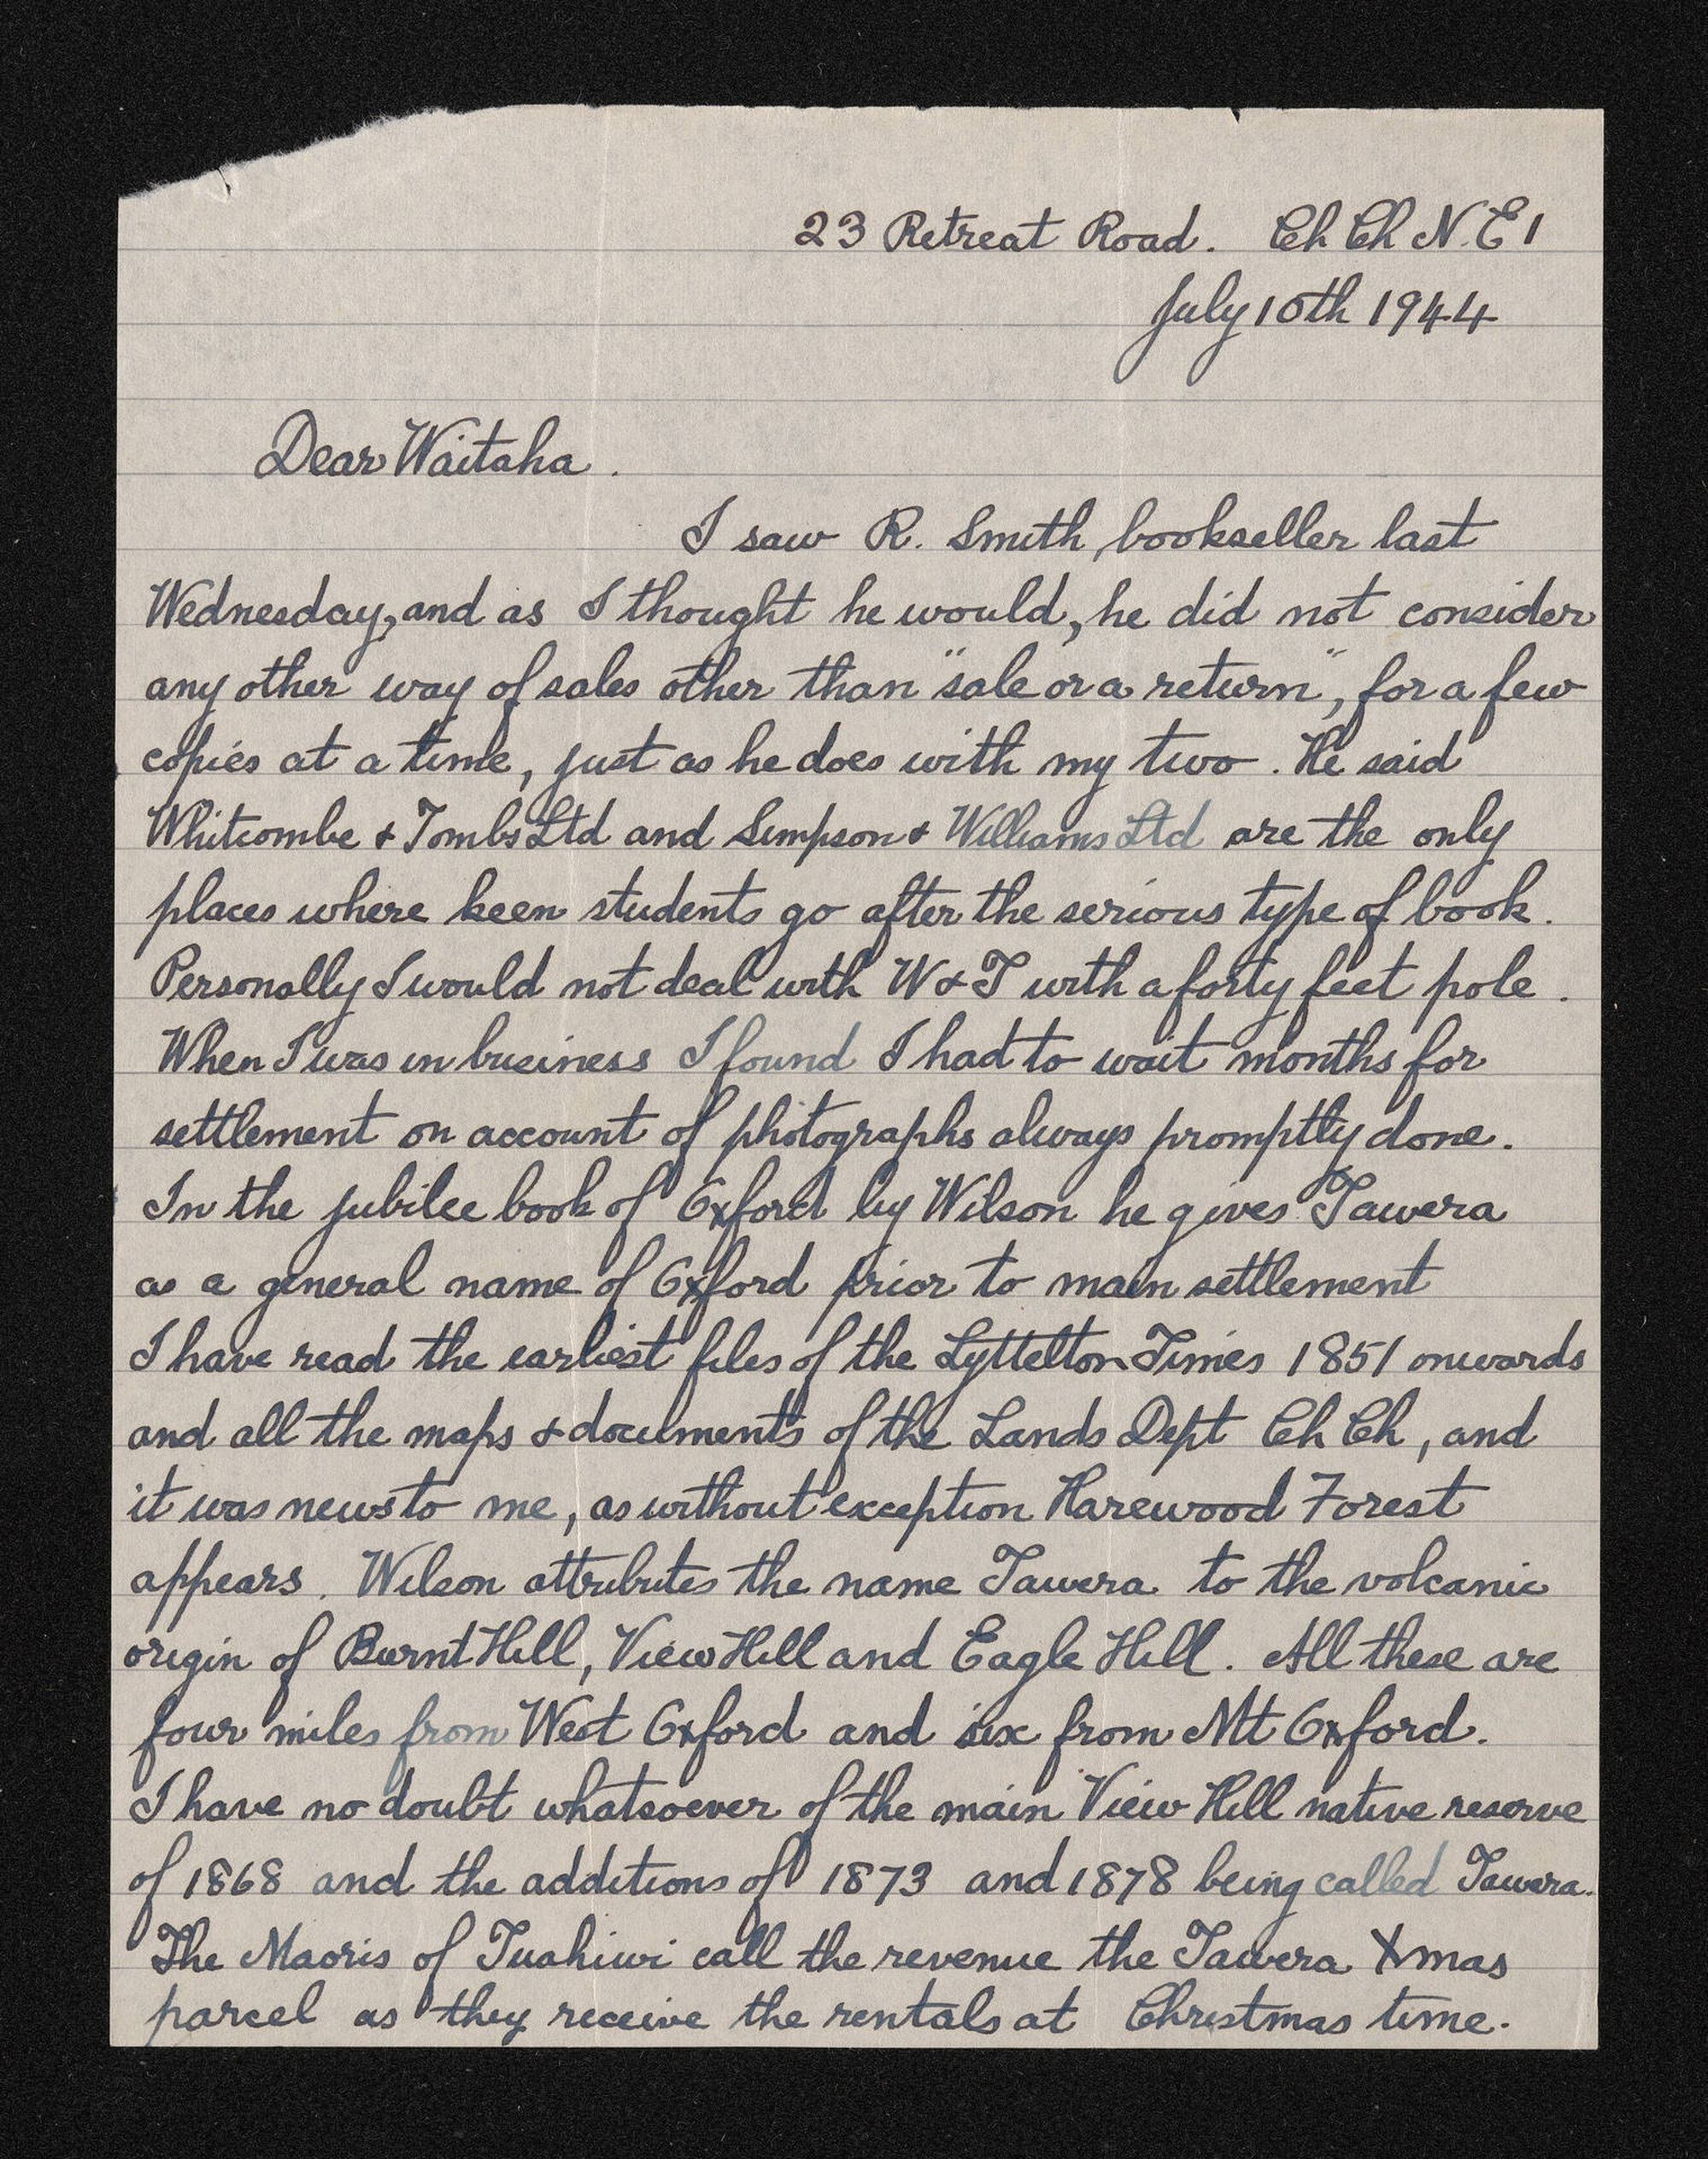 23 Retreat Road. Ch Ch N.E 1
July 10th 1944
Dear Waitaha.
I saw R. Smith, bookseller last
Wednesday, and as I thought he would, he did not consider
any other way of sales other than "sale or a return", for a few
copies at a time, just as he does with my two. He said
Whitcombe & Tombs Ltd and Simpson & Williams Ltd are the only
places where keen students go after the serious type of book.
Personally I would not deal with W & T with a forty feet pole.
When I was in business I found I had to wait months for
settlement on account of photographs always promptly done.
In the jubilee book of Oxford by Wilson he gives Tawera
as a general name of Oxford prior to main settlement
I have read the earliest files of the Lyttelton Times 1851 onwards
and all the maps & documents of the Lands Dept Ch Ch, and
it was news to me, as without exception Harewood Forest
appears. Wilson attributes the name Tawera to the volcanic
origin of Burnt Hill, View Hill and Eagle Hill. All these are
four miles from West Oxford and six from Mt Oxford.
I have no doubt whatsoever of the main View Hill native reserve
of 1868 and the additions of 1873 and 1878 being called Tawera.
The Maoris of Tuahiwi call the revenue the Tawera Xmas
parcel as they receive the rentals at Christmas time.